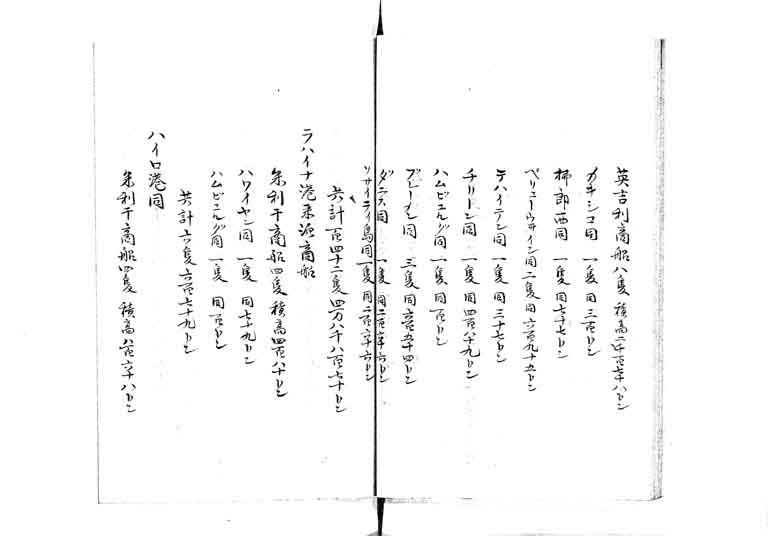 英吉利商船八隻 積高二千百七十八トン
メキシコ同 一隻 同三百トン
拂郎西同 一隻 同七十七トン
ペリューウサイン同 二隻 同六百九十五トン
テハイテン同 一隻 同三十七トン
チリトン同 一隻 同四百八十九トン
ハムビユルグ同 一隻 同百トン
ブレーメン同 三隻 同六百五十四トン
ダニス同 一隻 同二百六十六トン
ソサイティ島同 一隻 同二百六十六トン
共計百四十二隻 四万八千八百七十トン
ラハイナ港来泊商船
米利干商船四隻 積高四百八十トン
ハワイヤン同 一隻 同七十九トン
ハムビユルグ同 一隻 同百トン
共計六隻 六百七十九トン
ハイロ港同
米利干商船四隻 積高八百六十八トン